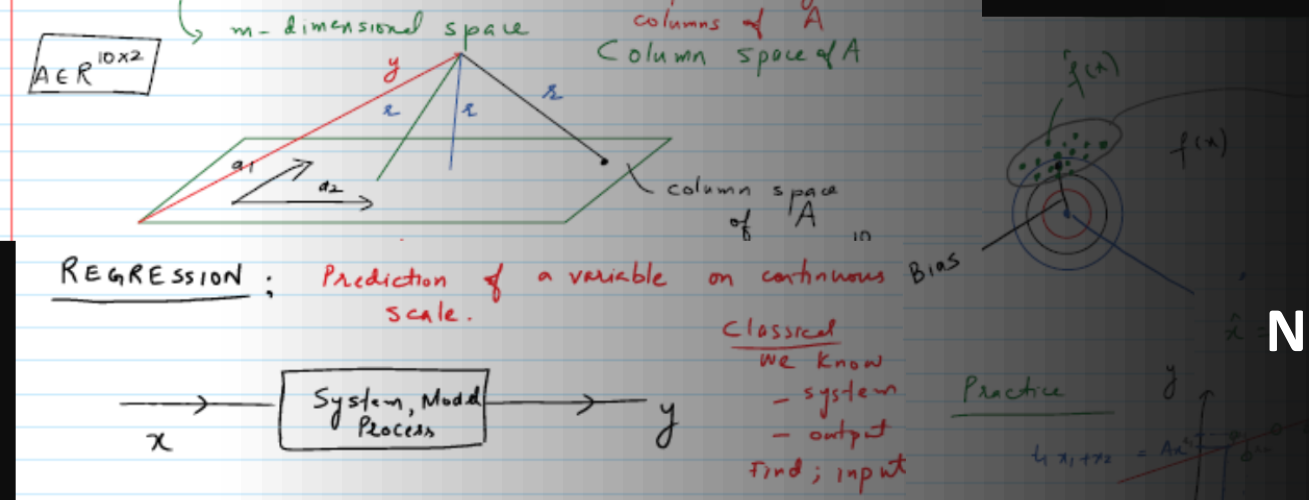 m-dimensional space
columns of A
Column space of A
A ∈ R^{10×2}
y
r
r
r
a1
a2
column space
of A
10
f̂(x)
f(x)
Bias
REGRESSION : Prediction of a variable on continuous
scale.
x
System, Model
Process
y
Classical
we know
- system
- output
Find ; input
x̂ =
N
Practice
y
4x1+x2 =